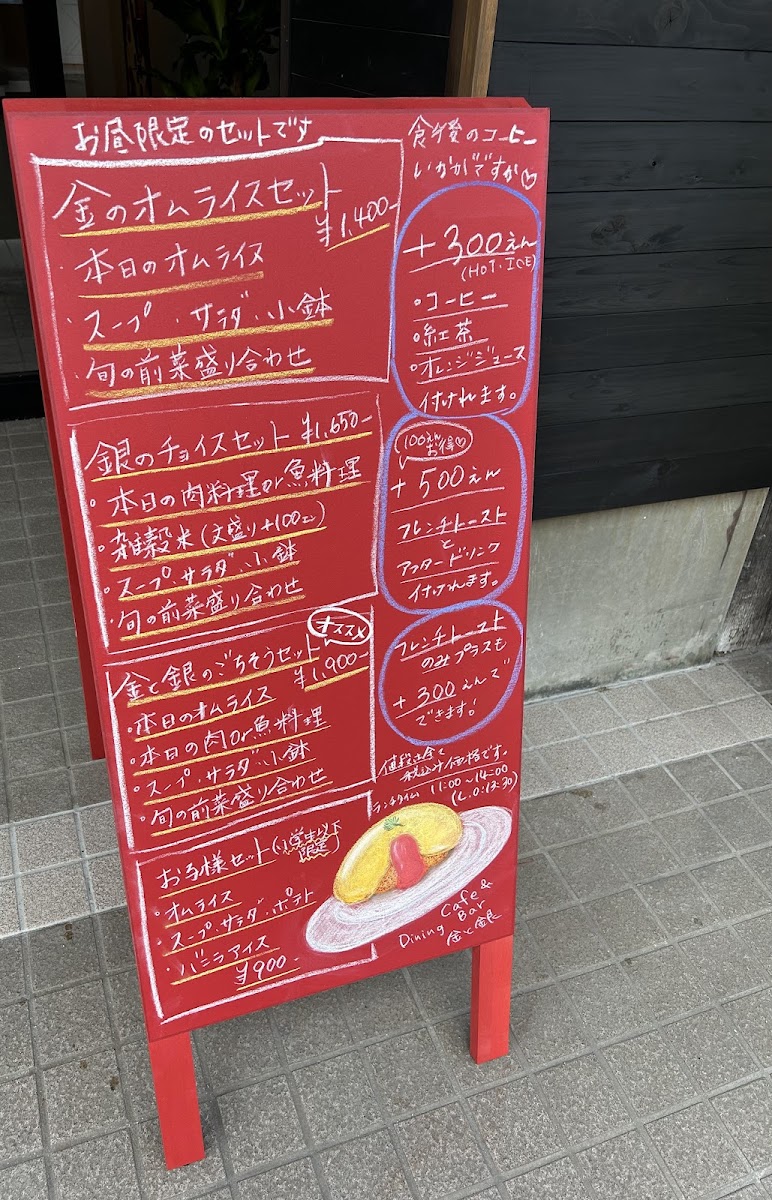 お昼限定のセットです
金のオムライスセット
¥1,400-
・本日のオムライス
・スープ・サラダ・小鉢
・旬の前菜盛り合わせ
銀のチョイスセット ¥1,650-
・本日の肉料理or魚料理
・雑穀米(大盛り+100エン)
・スープ・サラダ・小鉢
・旬の前菜盛り合わせ
オススメ
金と銀のごちそうセット
¥1,900-
・本日のオムライス
・本日の肉or魚料理
・スープ・サラダ・小鉢
・旬の前菜盛り合わせ
お子様セット(小学生以下
限定)
・オムライス
・スープ・サラダ・ポテト
・バニラアイス
¥900-
食後のコーヒー
いかがですか♡
+300えん
(HOT・ICE)
・コーヒー
・紅茶
・オレンジジュース
付けれます。
100えん
お得♡
+500えん
フレンチトースト
と
アフタードリンク
付けれます。
フレンチトースト
のみプラスも
+300えんで
できます!
値段は全て
税込み価格です。
ランチタイム 11:00～14:00
(L.O:13:30)
Cafe &
Dining Bar
金と銀